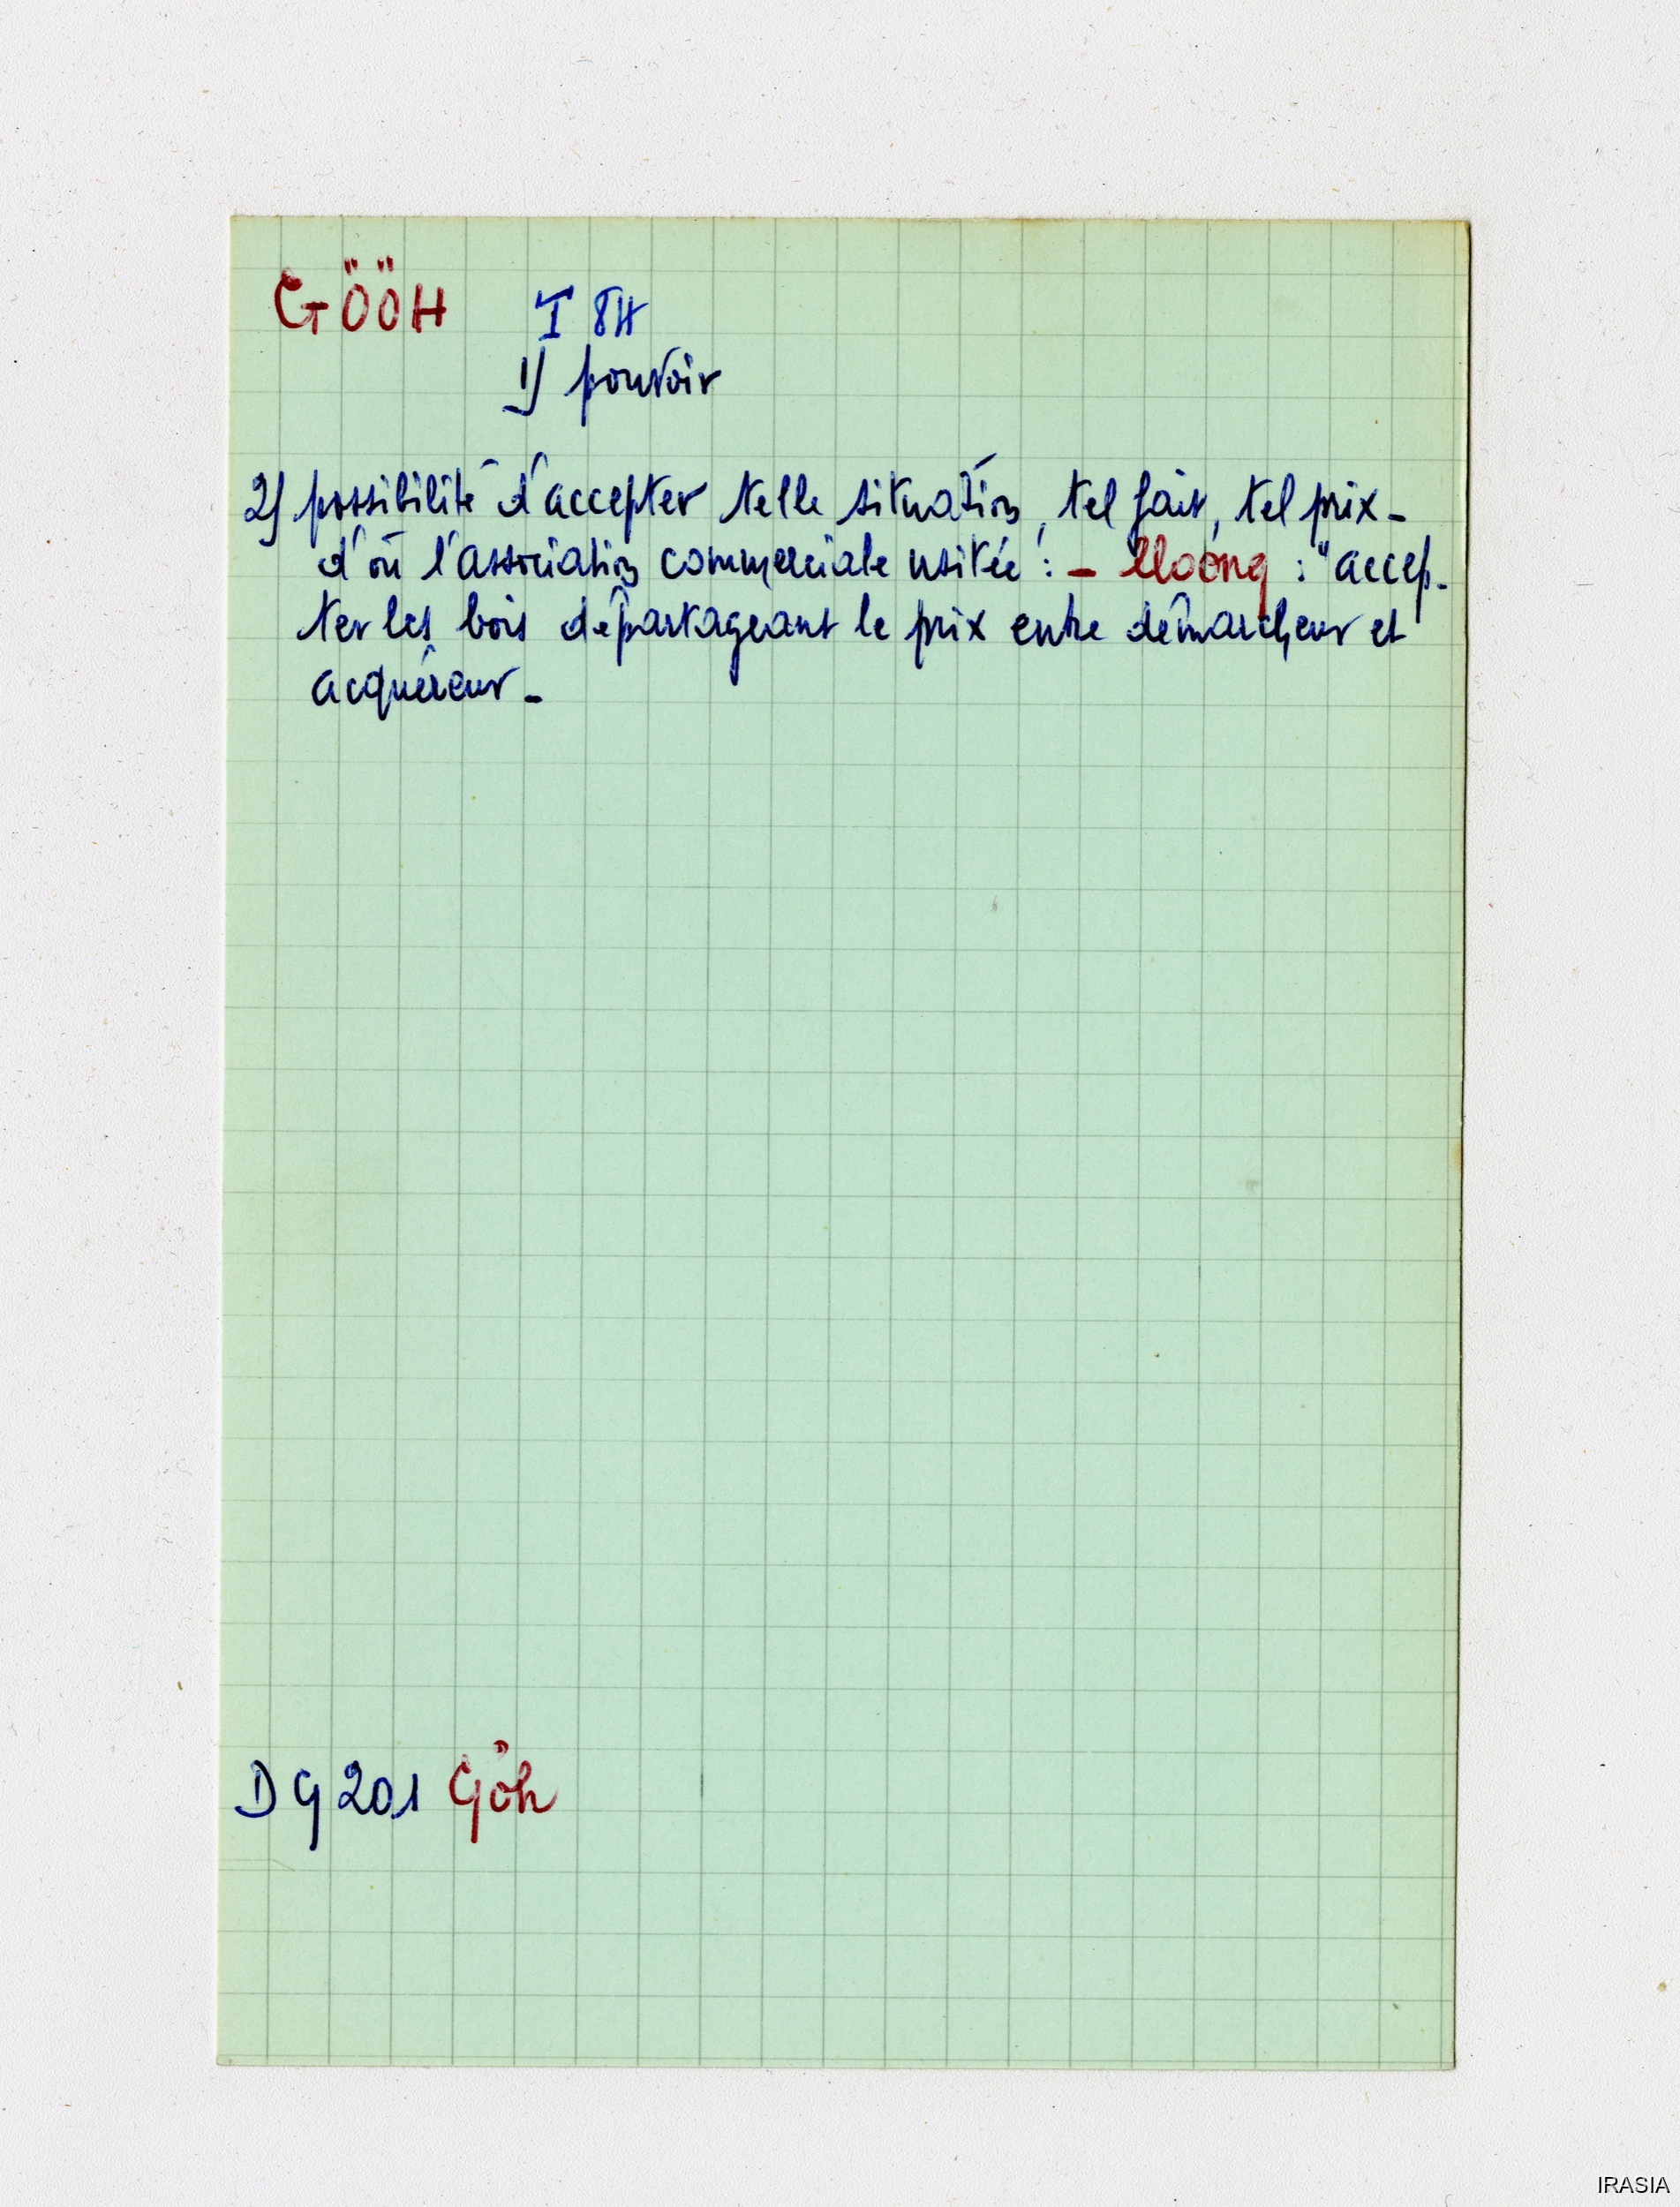 GÖÖH I 8H
1) pouvoir
2) possibilité d'accepter telle situation, tel fait, tel prix -
d'où l'association commerciale usitée : - lloong : "accep-
ter les bois départageant le prix entre démarcheur et
acquéreur -
DG 201 Göh
IRASIA